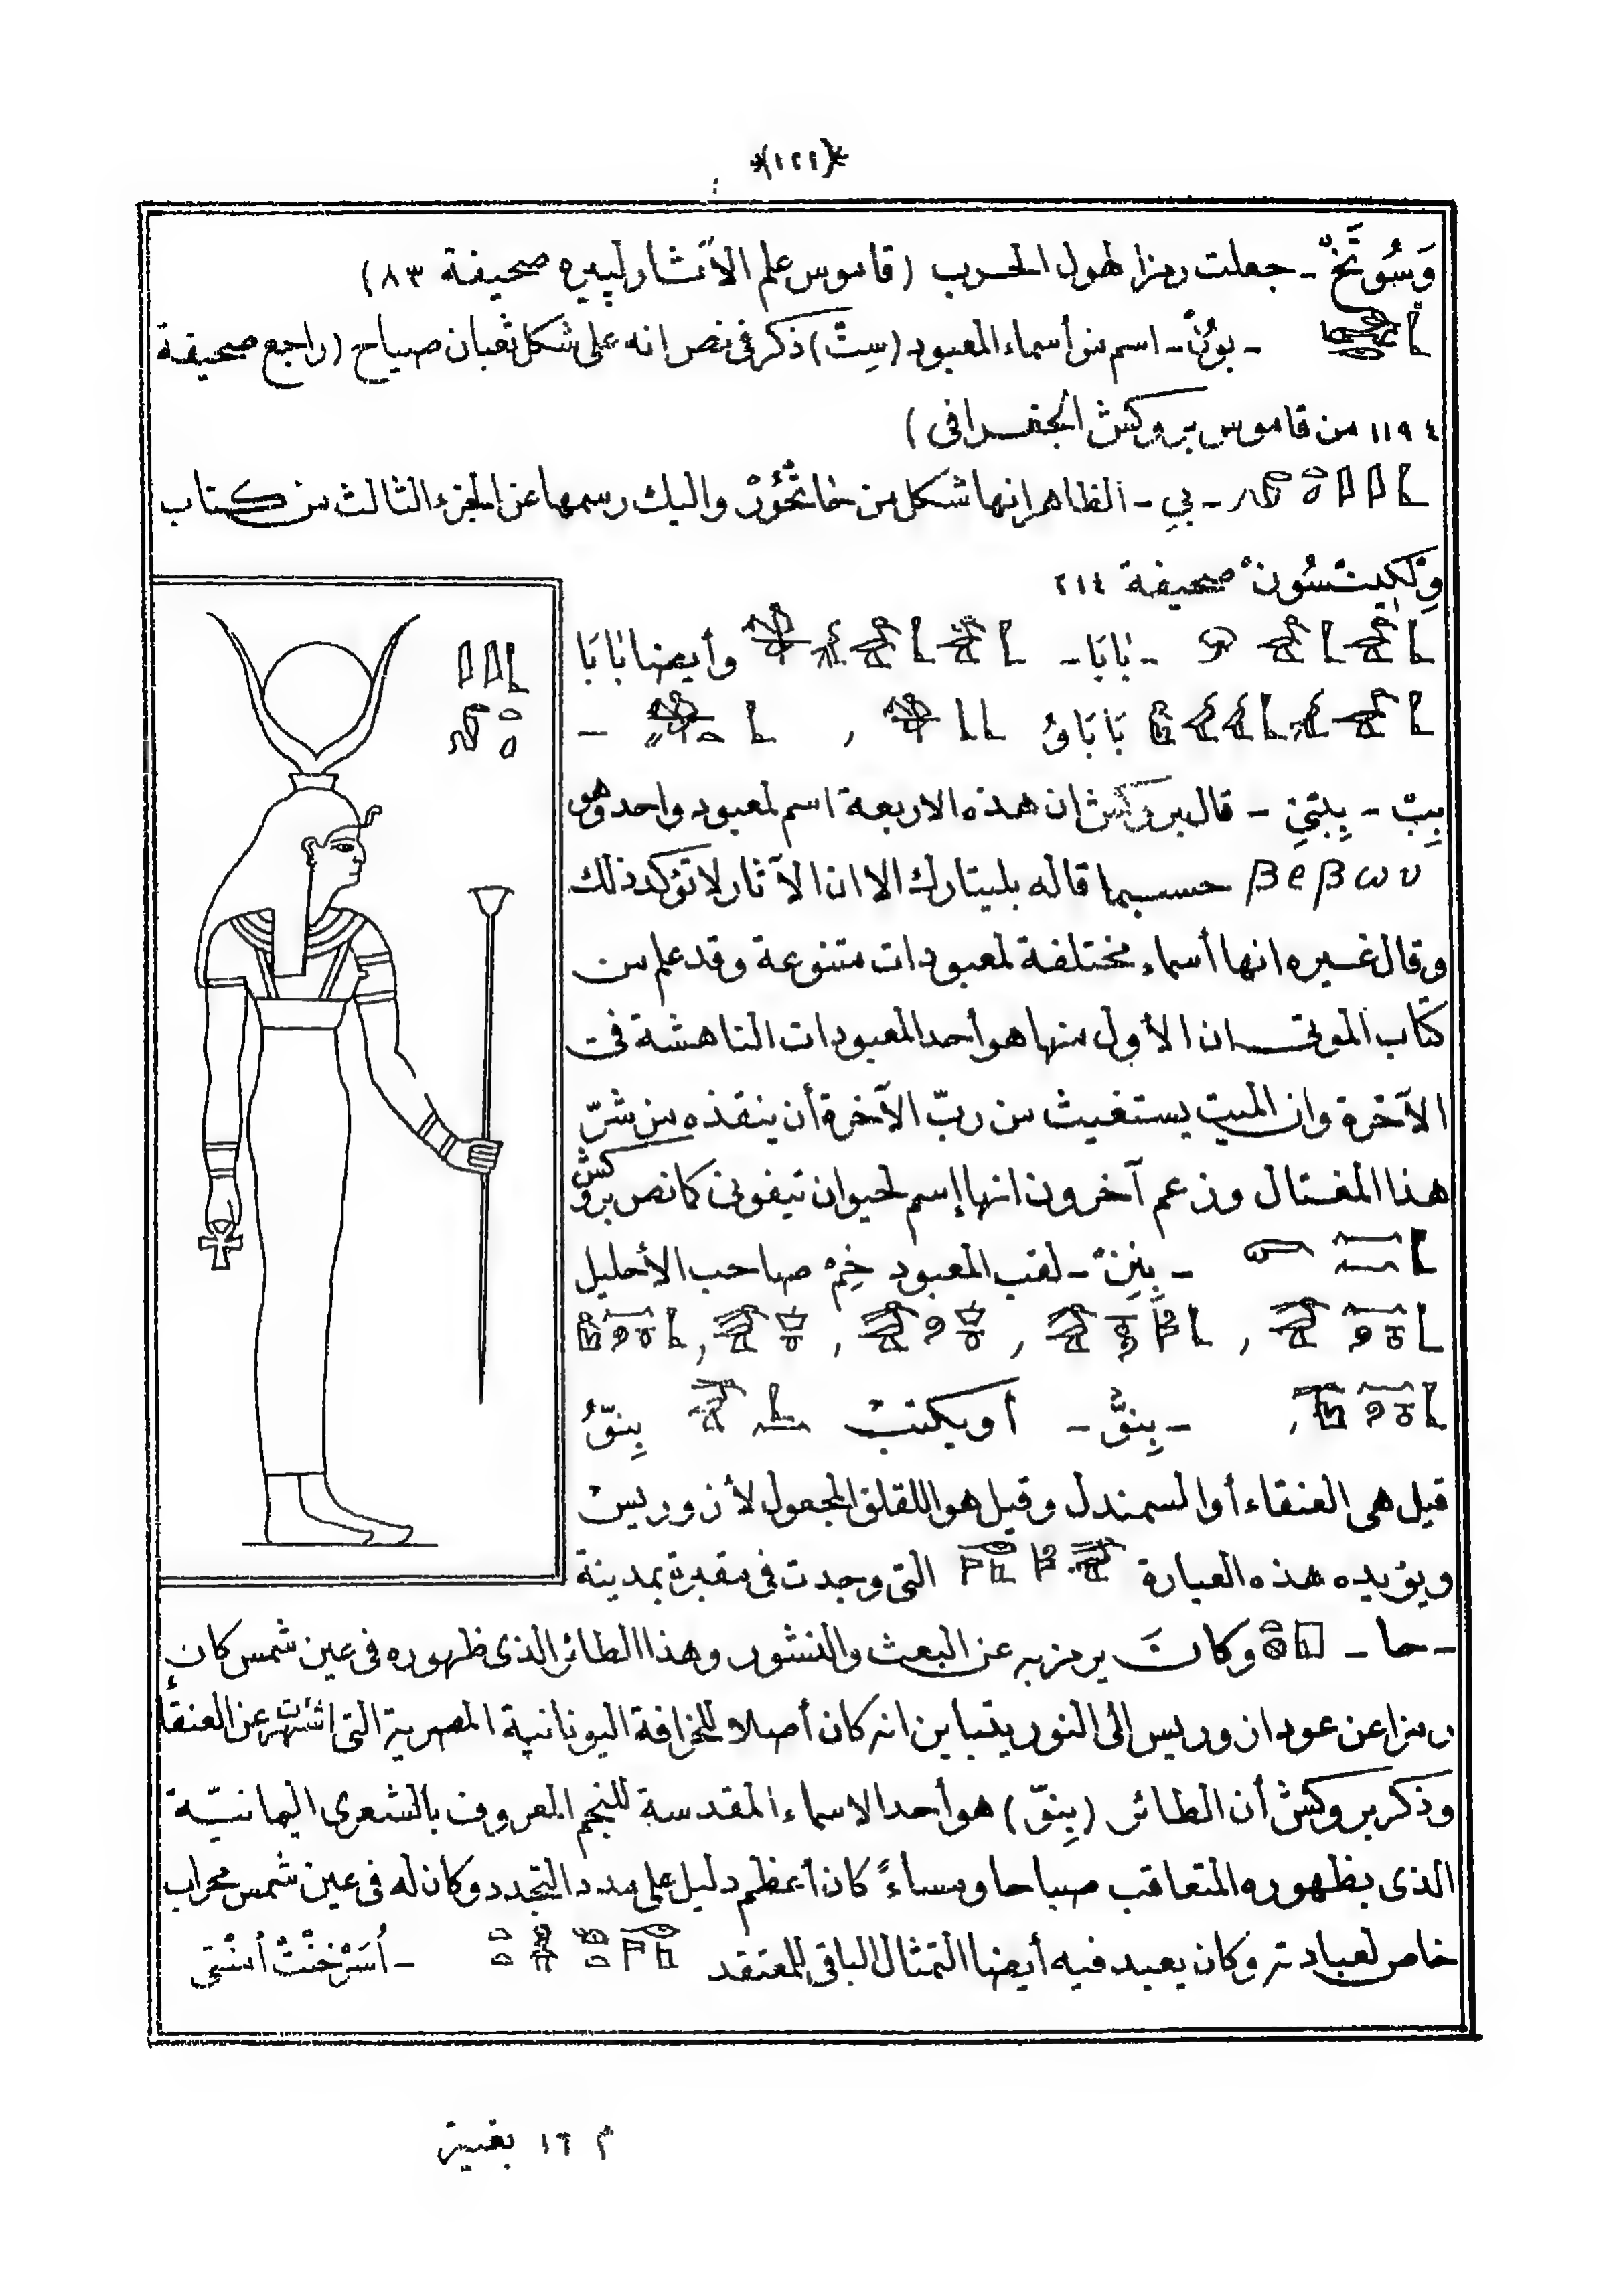 *(١٢١)*
وَسُوتَخْ - جعلت رمزا لهول الحرب (قاموس علم الآثار لپيره صحيفة ٨٣)
- بُونْ - اسم من أسماء المعبود (سِتْ) ذكر فى نص انه على شكل ثعبان صياح (راجع صحيفة
١١٩٤ من قاموس بروكش الجغرافى)
- بِي - الظاهر انها شكل من خاتْحُورْ واليك رسمها عن الجزء الثالث من كتاب
وِلْكِينْسُونْ صحيفة ٢١٤
- بَابَا - وأيضا بَابَا
بَابَاوُ , -
بِبْ - بِبْتِي - قال بروكش ان هذه الاربعة اسم لمعبود واحد وهو
βεβωυ حسبما قاله بليتارك الا ان الآثار لا تؤكد ذلك
وقال غيره انها أسماء مختلفة لمعبودات متنوعة وقد علم من
كتاب الموتى ان الأول منها هو أحد المعبودات الناهشة فى
الآخرة وان الميت يستغيث من ربّ الآخرة أن ينقذه من شرّ
هذا المغتال وزعم آخرون انها إسم لحيوان تيفونى كما نص بروكش
- بِنِنْ - لقب المعبود خِمْ صاحب الأحليل
, , , ,
, - بِنُّو - أو يكتب بِنُّو
قيل هى العنقاء أو السمندل وقيل هو اللقلق المجعول لأزوريس
ويؤيده هذه العبارة التى وجدت فى مقبرة بمدينة
- حا - وكانت يرمز به عن البعث والنشور وهذا الطائر الذى ظهوره فى عين شمس كان
رمزا عن عود ازوريس الى النور يتباين انه كان أصلا للخرافة اليونانية المصرية التى اشتهرت عن العنقاء
وذكر بروكش أن الطائر (بِنُّو) هو أحد الاسماء المقدسة للنجم المعروف بالشعرى اليمانيّة
الذى بظهوره المتعاقب صباحا ومساءً كان أعظم دليل على مدد التجدد وكان له فى عين شمس محراب
خاص لعبادته وكان يعبد فيه أيضا التمثال الباقى للمعتقد - أُسَرْخِنْتْ أمِنْتِى
م ١٦ بغية